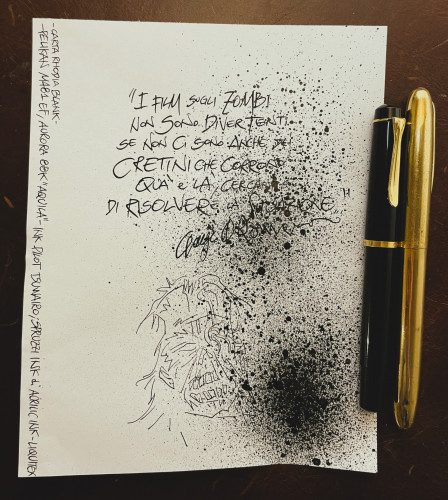 "I FILM SUGLI ZOMBI
NON SONO DIVERTENTI
SE NON CI SONO ANCHE DEI
CRETINI CHE CORRONO
QUA E LA CERCANDO
DI RISOLVERE LA SITUAZIONE"
- CARTA RHODIA BLANK -
- PELIKAN M481 EF, AURORA 88K "AQUILA" - INK PILOT TSUWAIRO, SPRUZZI INK di ACRILIC INK - LIQUITEX